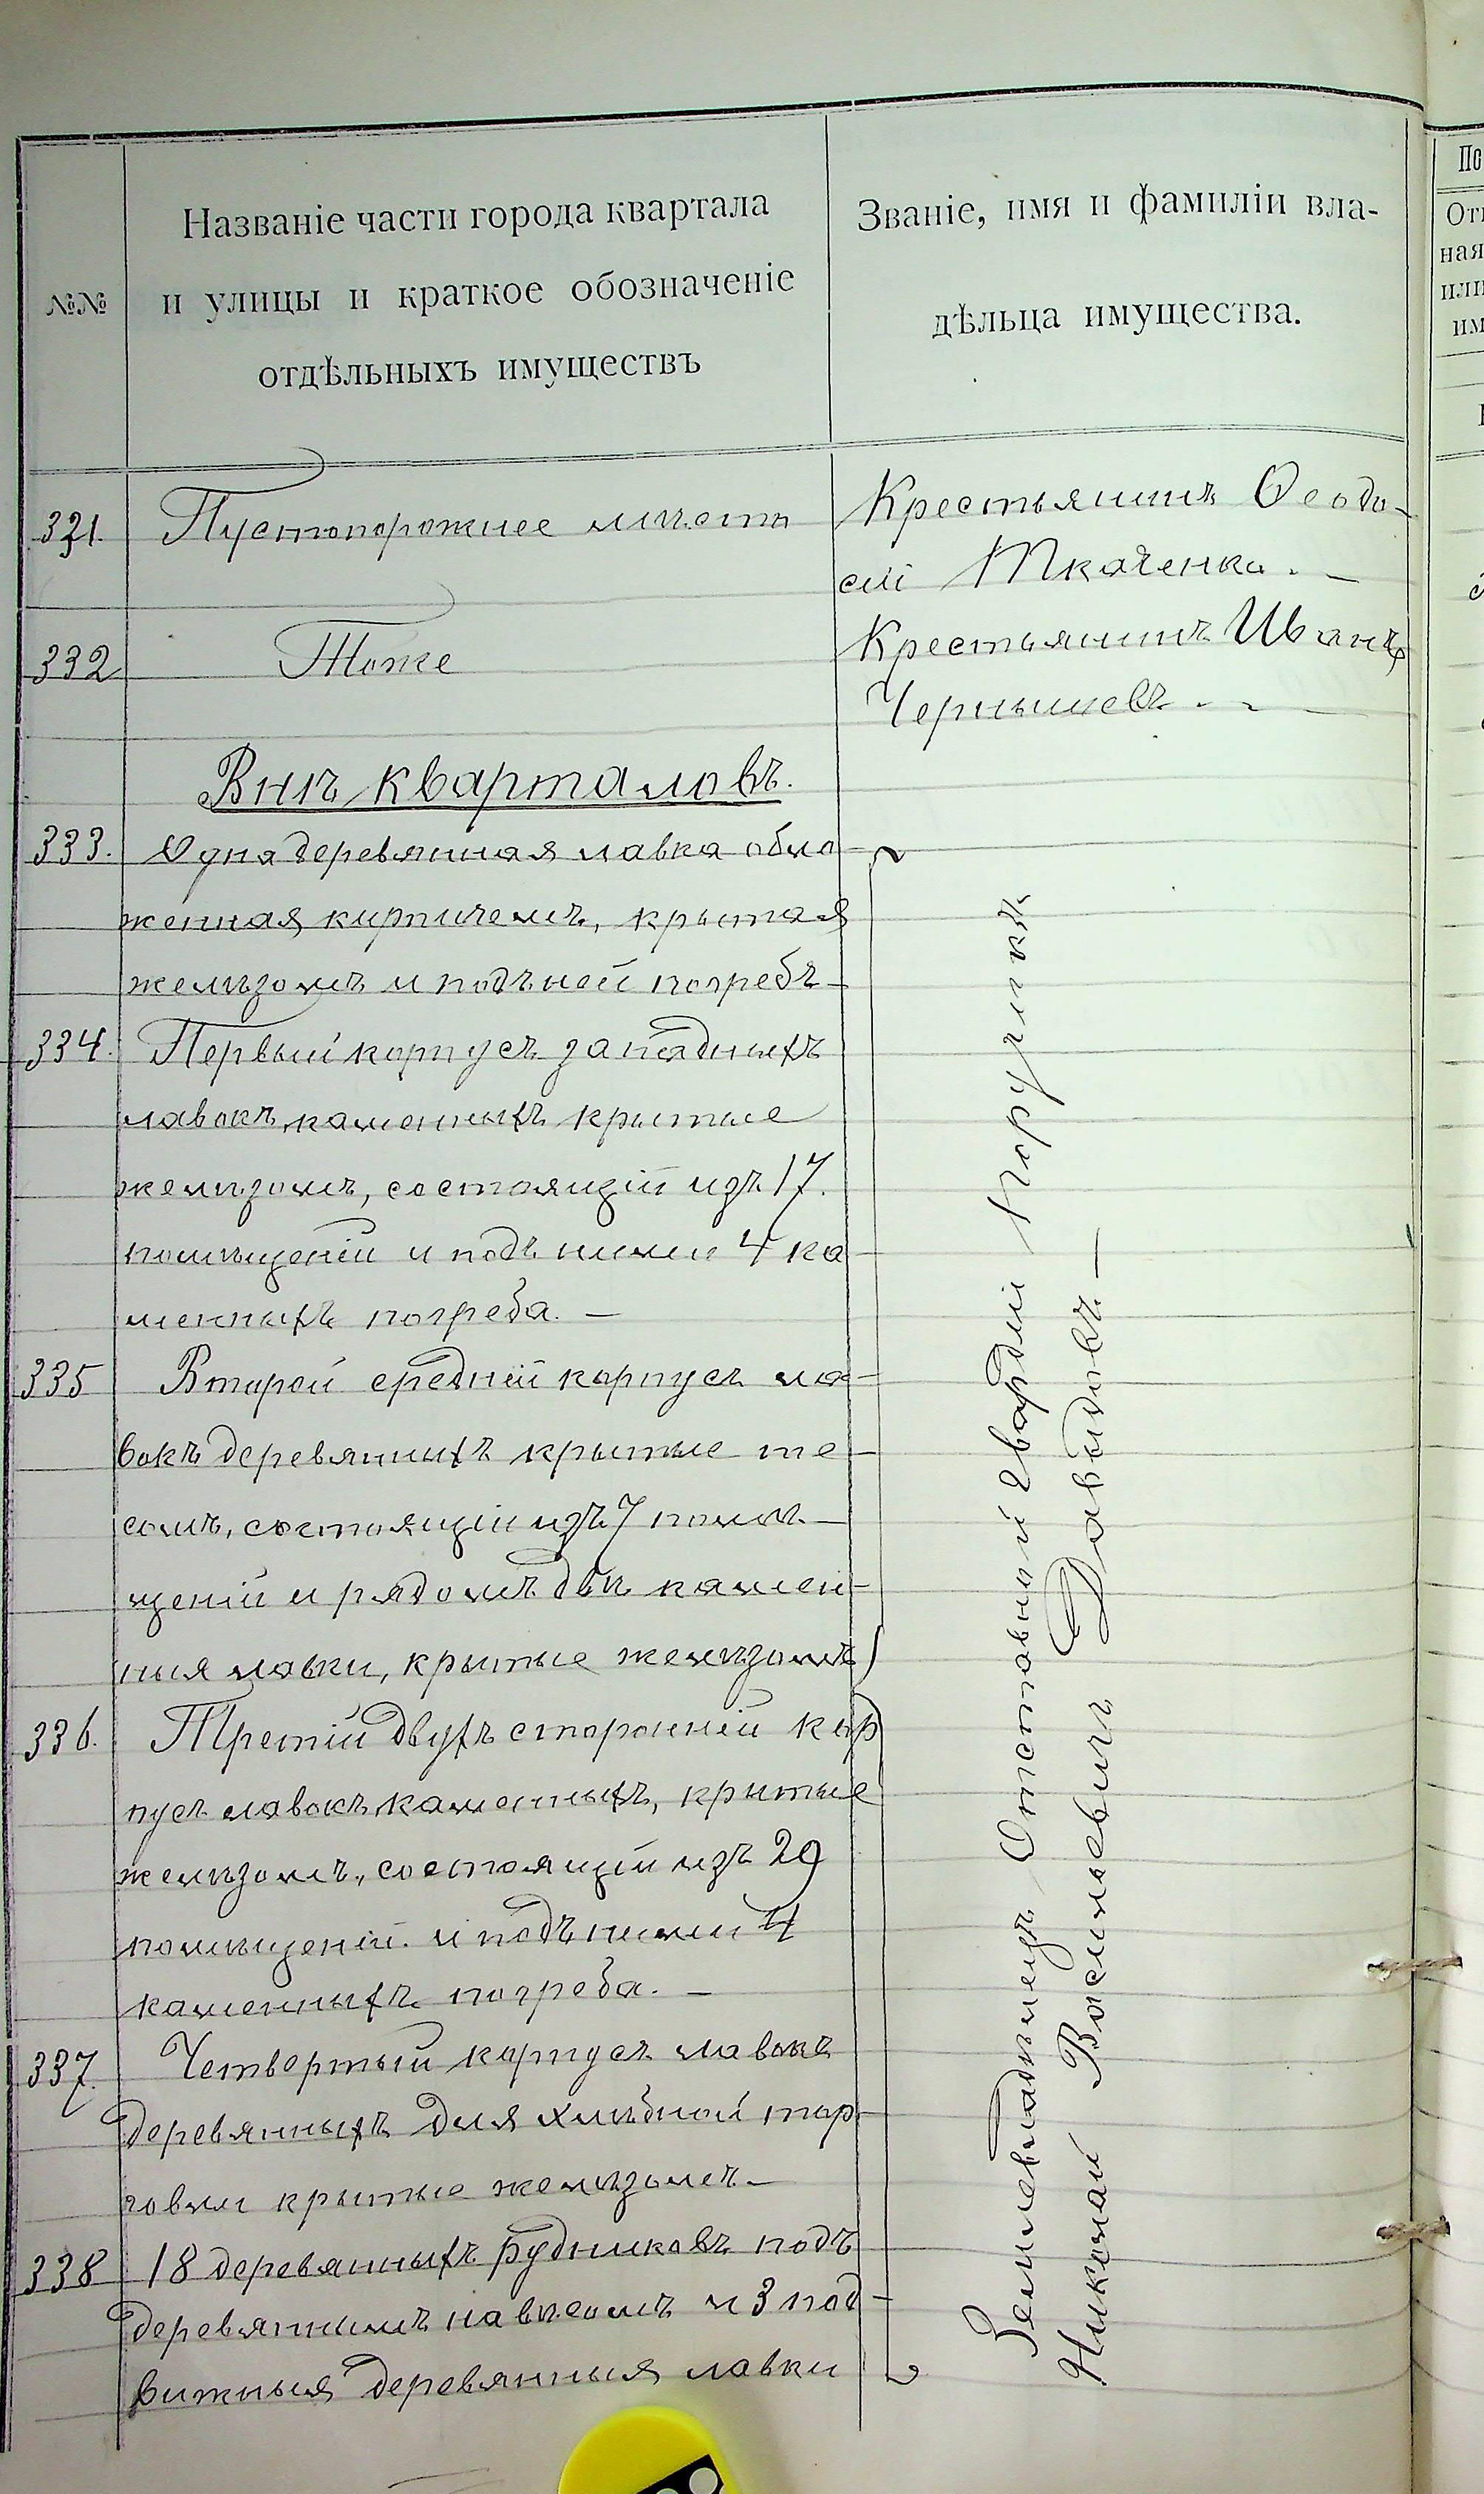 №№
Названіе части города квартала
и улицы и краткое обозначеніе
отдѣльныхъ имуществъ
Званіе, имя и фамиліи вла-
дѣльца имущества.
331. Пустопорожнее мѣсто
Крестьянинъ Ѳеодо-
сій Ткаченко. —
332 Тоже
Крестьянинъ Иванъ
Чернышевъ. —
Внѣ кварталовъ.
333. Одна деревянная лавка обло-
женная кирпичемъ, крытая
желѣзомъ и подъ ней погребъ —
334. Первый корпусъ западныхъ
лавокъ, каменныхъ крытые
желѣзомъ, состоящій изъ 17.
помѣщеній и подъ ними 4 ка-
менныхъ погреба. —
335 Второй средній корпусъ ла-
вокъ деревянныхъ крытые те-
сомъ, состоящій изъ 7 помѣ-
щеній и рядомъ двѣ камен-
ныя лавки, крытые желѣзомъ
336. Третій двухъ сторонній кор
пусъ лавокъ каменныхъ, крытые
желѣзомъ, состоящій изъ 29
помѣщеній. и подъ ними 4
каменныхъ погреба. —
337. Четвертый корпусъ лавокъ
деревянныхъ для хлѣбной тор-
говли крытые желѣзомъ —
338 18 деревянныхъ рудниковъ подъ
деревяннымъ навѣсомъ и 3 под-
вижныя деревянныя лавки
Землевладѣлецъ Отставной Гвардіи Поручикъ
Николай Васильевичъ Давыдовъ —
По
От
ная
или
им